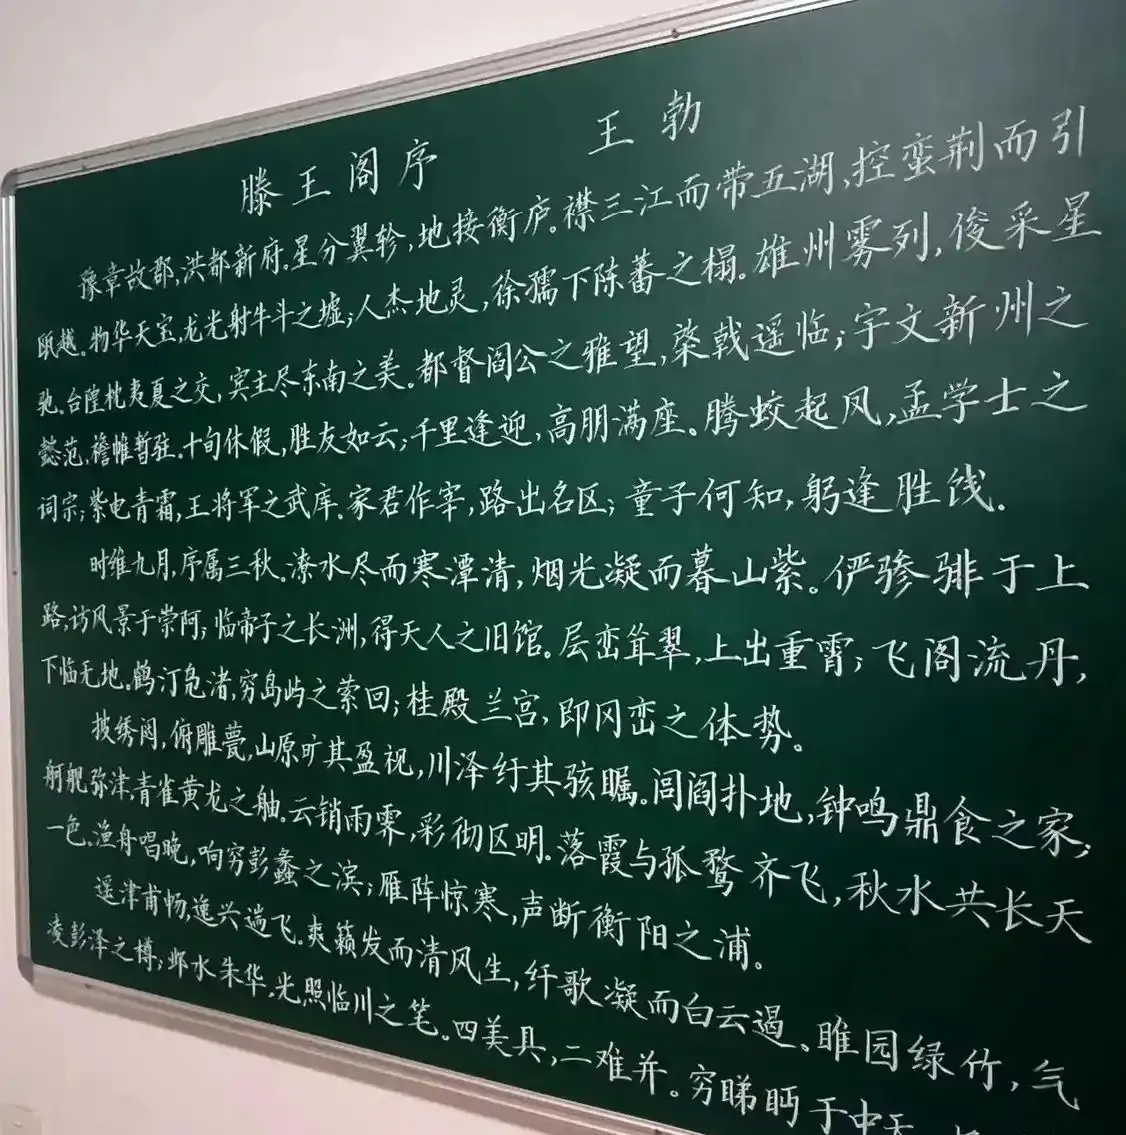 滕王阁序 王勃
豫章故郡,洪都新府。星分翼轸,地接衡庐。襟三江而带五湖,控蛮荆而引
瓯越。物华天宝,龙光射牛斗之墟;人杰地灵,徐孺下陈蕃之榻。雄州雾列,俊采星
驰。台隍枕夷夏之交,宾主尽东南之美。都督阎公之雅望,棨戟遥临;宇文新州之
懿范,襜帷暂驻。十旬休假,胜友如云;千里逢迎,高朋满座。腾蛟起凤,孟学士之
词宗;紫电青霜,王将军之武库。家君作宰,路出名区;童子何知,躬逢胜饯。
时维九月,序属三秋。潦水尽而寒潭清,烟光凝而暮山紫。俨骖騑于上
路,访风景于崇阿;临帝子之长洲,得天人之旧馆。层峦耸翠,上出重霄;飞阁流丹,
下临无地。鹤汀凫渚,穷岛屿之萦回;桂殿兰宫,即冈峦之体势。
披绣闼,俯雕甍,山原旷其盈视,川泽纡其骇瞩。闾阎扑地,钟鸣鼎食之家;
舸舰弥津,青雀黄龙之舳。云销雨霁,彩彻区明。落霞与孤鹜齐飞,秋水共长天
一色。渔舟唱晚,响穷彭蠡之滨;雁阵惊寒,声断衡阳之浦。
遥津甫畅,逸兴遄飞。爽籁发而清风生,纤歌凝而白云遏。睢园绿竹,气
凌彭泽之樽;邺水朱华,光照临川之笔。四美具,二难并。穷睇眄于中天,